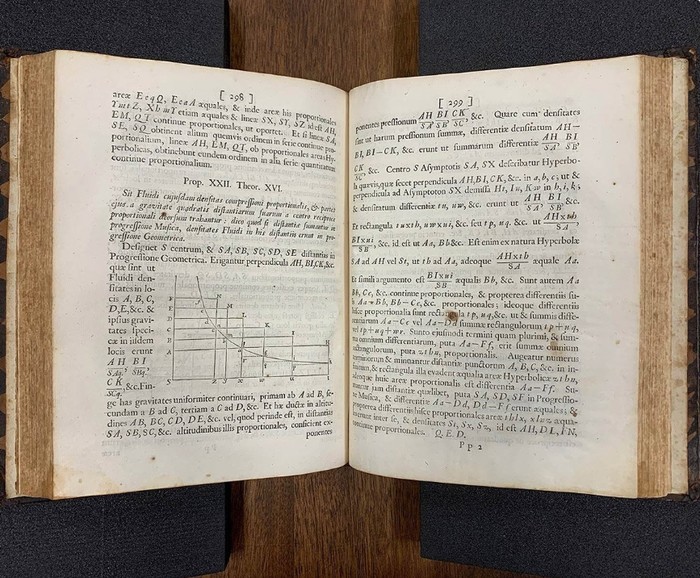 [ 298 ]
areæ EeqQ, EeaA æquales, & inde areæ his proportionales
YmtZ, XhmY etiam æquales & lineæ SX, SY, SZ id est AH,
EM, QT continue proportionales, ut oportet. Et si lineæ SA,
SE, SQ obtinent alium quemvis ordinem in serie continue pro-
portionalium, lineæ AH, EM, QT, ob proportionales areas Hy-
perbolicas, obtinebunt eundem ordinem in alia serie quantitatum
continue proportionalium.
Prop. XXII. Theor. XVI.
Sit Fluidi cujusdam densitas compressioni proportionalis, & partes
ejus a gravitate quadratis distantiarum suarum a centro reciproce
proportionali deorsum trahantur: dico quod si distantiæ sumantur in
progressione Musica, densitates Fluidi in his distantiis erunt in pro-
gressione Geometrica.
Designet S centrum, & SA, SB, SC, SD, SE distantias in
Progressione Geometrica. Erigantur perpendicula AH, BI, CK, &c.
quæ sint ut
Fluidi den-
sitates in lo-
cis A, B, C,
D, E, &c. &
ipsius gravi-
tates speci-
cæ in iisdem
locis erunt
AH BI
SAq. SBq.
CK
SCq. &c. Fin-
ge has gravitates uniformiter continuari, primam ab A ad B, se-
cundam a B ad C, tertiam a C ad D, &c. Et hæ ductæ in altitu-
dines AB, BC, CD, DE, &c. vel, quod perinde est, in distantias
SA, SB, SC, &c. altitudinibus illis proportionales, conficient ex-
ponentes
[ 299 ]
ponentes pressionum AH/SA, BI/SB, CK/SC, &c. Quare cum densitates
sint ut harum pressionum summæ, differentiæ densitatum AH−
BI, BI−CK, &c. erunt ut summarum differentiæ AH/SA, BI/SB,
CK/SC, &c. Centro S Asymptotis SA, SX describatur Hyperbo-
la quævis, quæ secet perpendicula AH, BI, CK, &c. in a, b, c, ut &
perpendicula ad Asymptoton SX demissa Ht, Iu, Kw in h, i, k;
& densitatum differentiæ tu, uw, &c. erunt ut AH/SA, BI/SB, &c.
Et rectangula tu×th, uw×ui, &c. seu tp, uq, &c. ut AH×th/SA,
BI×ui/SB, &c. id est ut Aa, Bb &c. Est enim ex natura Hyperbolæ
SA ad AH vel St, ut th ad Aa, adeoque AH×th/SA æquale Aa.
Et simili argumento est BI×ui/SB æqualis Bb, &c. Sunt autem Aa
Bb, Cc, &c. continue proportionales, & propterea differentiis su-
is Aa−Bb, Bb−Cc, &c. proportionales; ideoque differentiis
hisce proportionalia sunt rectangula tp, uq, &c. ut & summis diffe-
rentiarum Aa−Cc vel Aa−Dd summæ rectangulorum tp+uq,
vel tp+uq+wr. Sunto ejusmodi termini quam plurimi, & sum-
ma omnium differentiarum, puta Aa−Ff, erit summæ omnium
rectangulorum, puta zthn, proportionalis. Augeatur numerus
terminorum & minuantur distantiæ punctorum A, B, C, &c. in in-
finitum, & rectangula illa evadent æqualia areæ Hyperbolicæ zthn,
adeoque huic areæ proportionalis est differentia Aa−Ff. Su-
mantur jam distantiæ quælibet, puta SA, SD, SF in Progressio-
ne Musica, & differentiæ Aa−Dd, Dd−Ff erunt æquales; &
propterea differentiis hisce proportionales areæ thlx, xlnz æqua-
les erunt inter se, & densitates St, Sx, Sz, id est AH, DL, FN,
continue proportionales. Q. E. D.
Pp 2